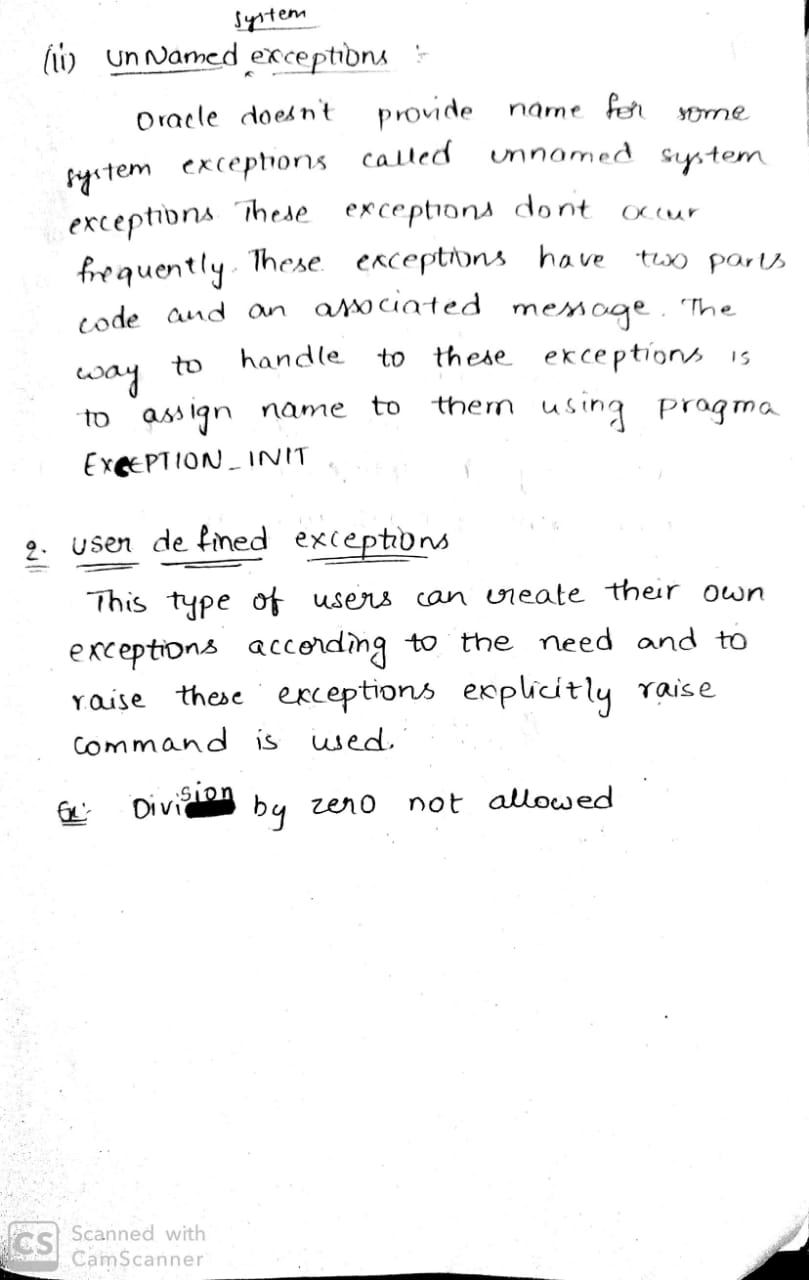 system
(ii) unNamed exceptions :-
Oracle doesn't provide name for some
system exceptions called unnamed system
exceptions These exceptions dont occur
frequently. These exceptions have two parts
code and an associated message. The
way to handle to these exceptions is
to assign name to them using pragma
EXCEPTION_INIT
2. user defined exceptions
This type of users can create their own
exceptions according to the need and to
raise these exceptions explicitly raise
command is used.
Ex:- Division by zero not allowed
CS Scanned with
CamScanner